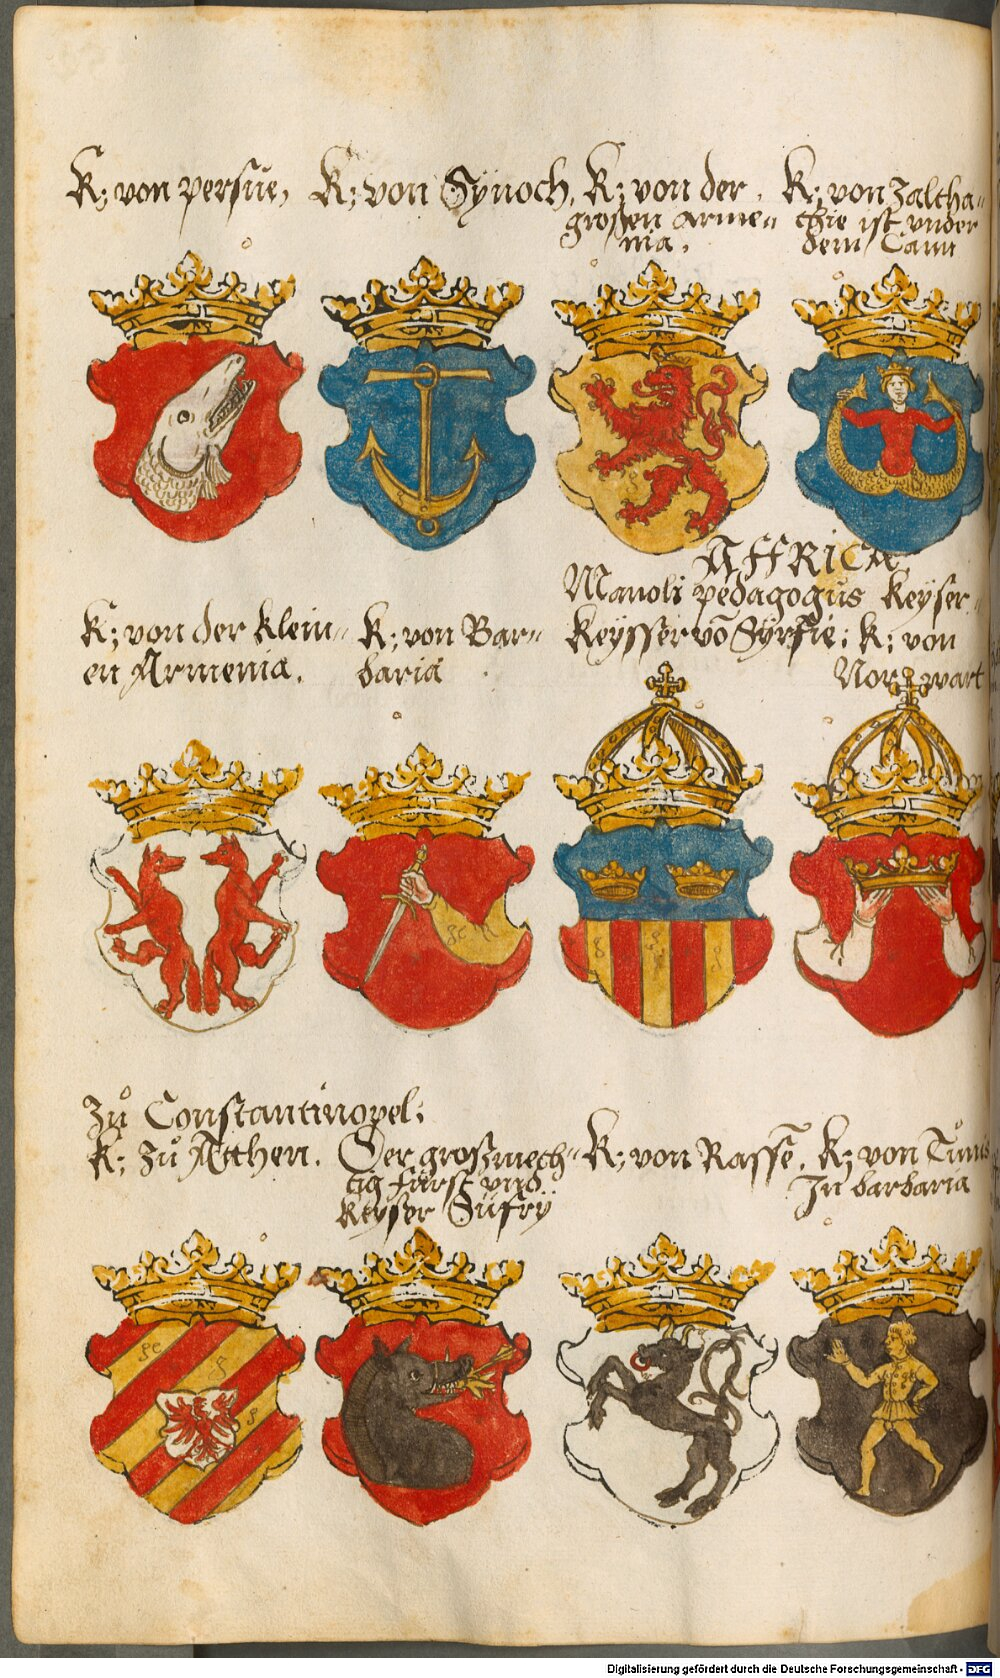 K: von persüe,
K: von Sÿnoch,
K: von der
großen arme=
nia.
K: von zaltha=
thie ist vnder
dem Cann
K: von der klein=
en Armenia.
K: von Bar=
baria
AFFRICA.
Manoli pedagogus Keÿser
Keÿsser vō Sÿrfie:
K: von
Nor wart
Zů Constantinopel:
K: Zů Atthen.
Der großmech=
tig fürst vnd
Keÿser Süfrÿ
K: von Rassē.
K: von Tůnis
In barbaria
Digitalisierung gefördert durch die Deutsche Forschungsgemeinschaft - DFG